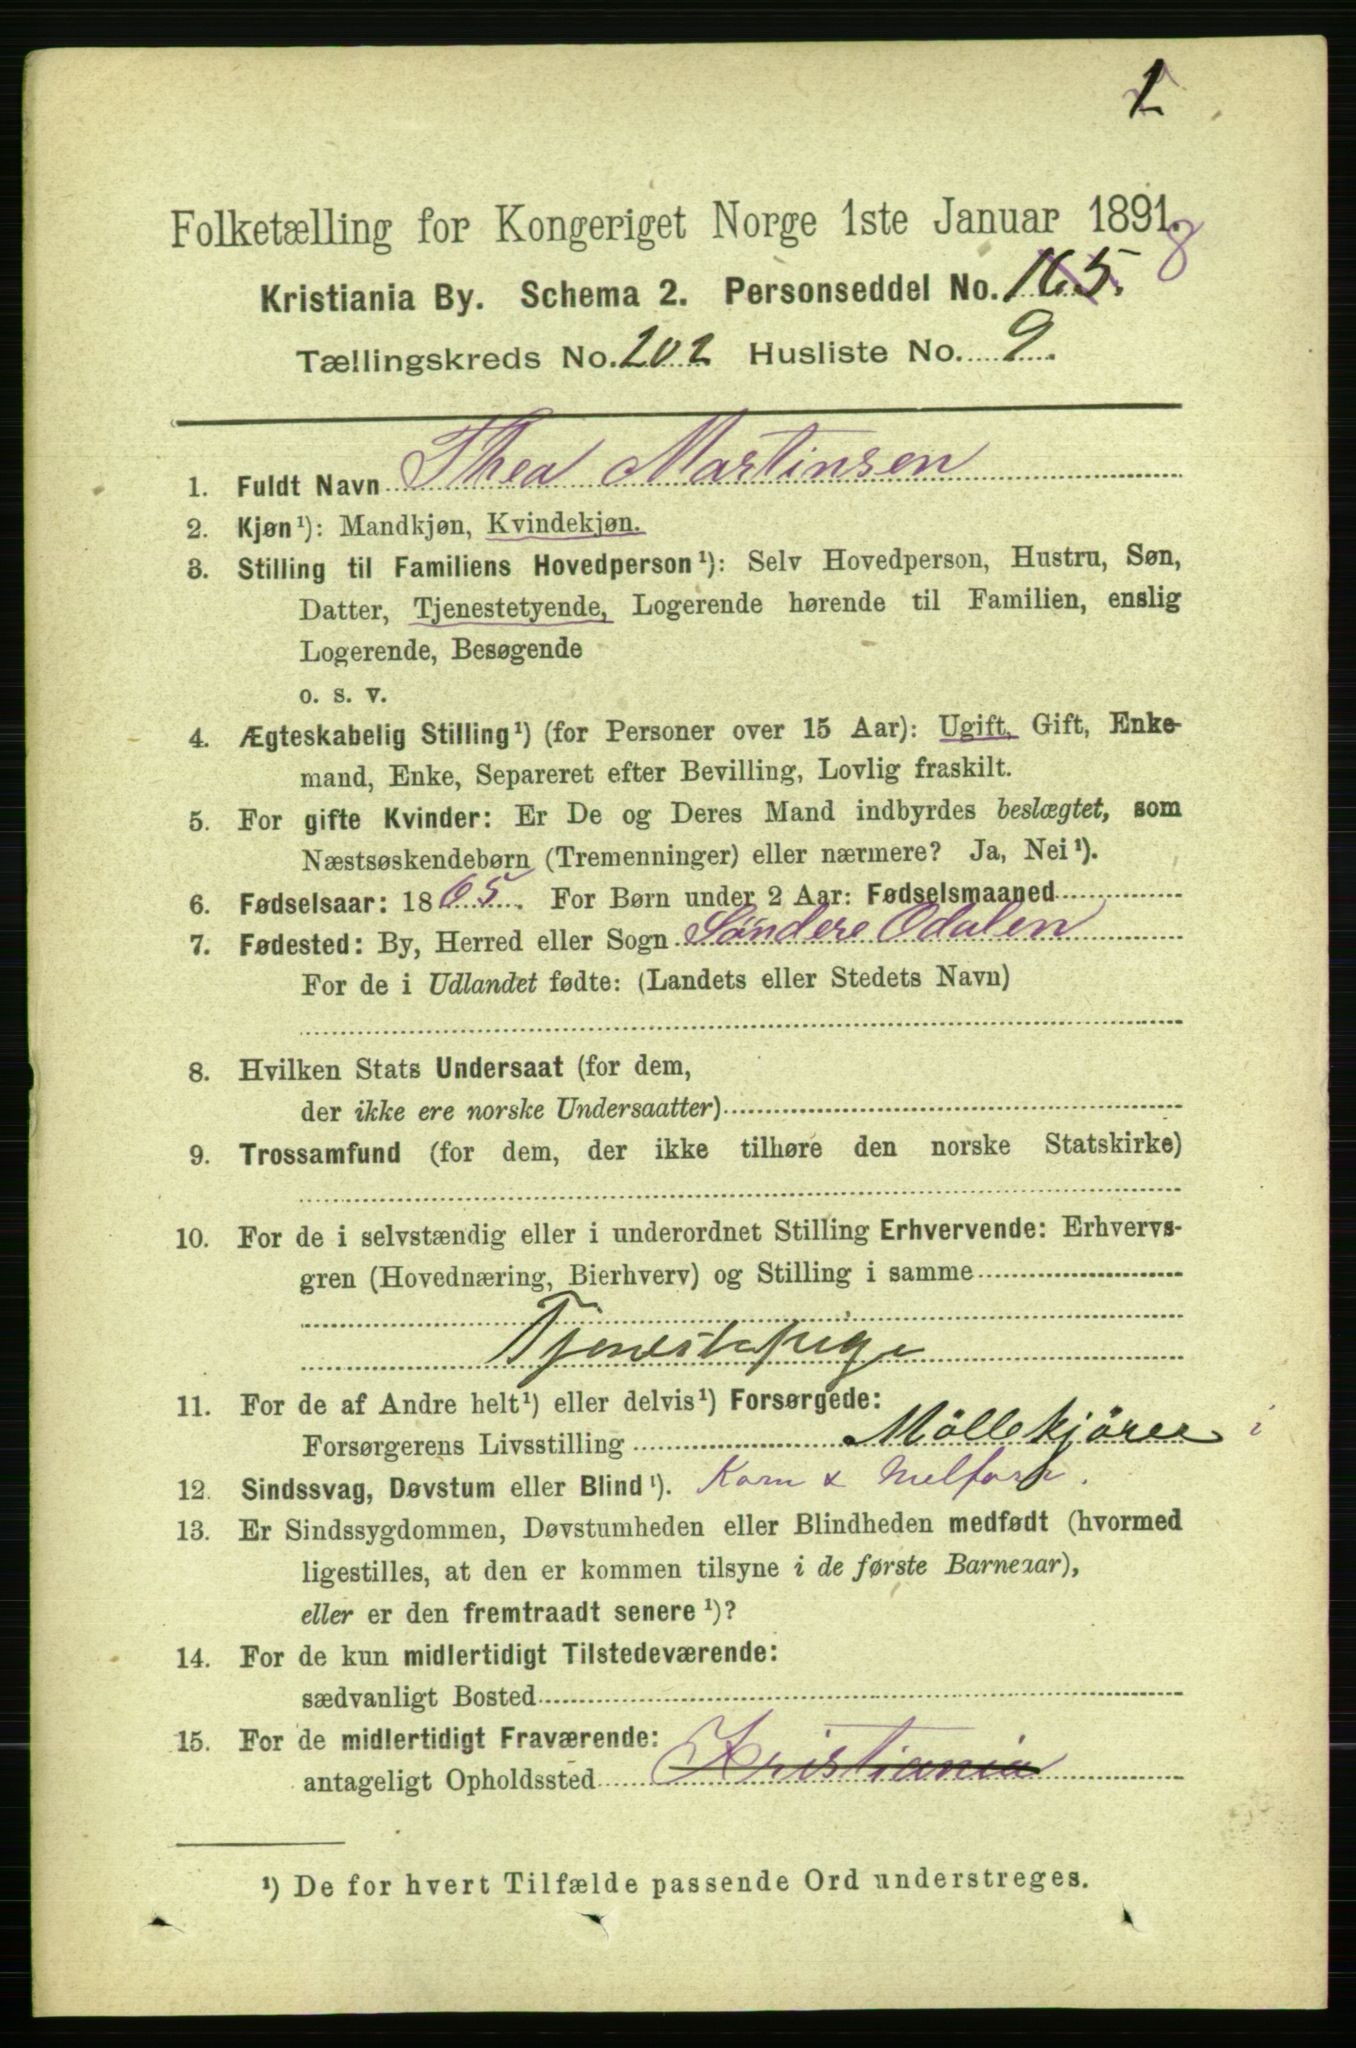 1
Folketælling for Kongeriget Norge 1ste Januar 1891.
8
Kristiania By. Schema 2. Personseddel No. 165.
Tællingskreds No. 202 Husliste No. 9.
1. Fuldt Navn Thea Martinsen
2. Kjøn¹): Mandkjøn, Kvindekjøn.
3. Stilling til Familiens Hovedperson¹): Selv Hovedperson, Hustru, Søn,
Datter, Tjenestetyende, Logerende hørende til Familien, enslig
Logerende, Besøgende
o. s. v.
4. Ægteskabelig Stilling¹) (for Personer over 15 Aar): Ugift, Gift, Enke-
mand, Enke, Separeret efter Bevilling, Lovlig fraskilt.
5. For gifte Kvinder: Er De og Deres Mand indbyrdes beslægtet, som
Næstsøskendebørn (Tremenninger) eller nærmere? Ja, Nei¹).
6. Fødselsaar: 1865. For Børn under 2 Aar: Fødselsmaaned
7. Fødested: By, Herred eller Sogn Søndere Odalen
For de i Udlandet fødte: (Landets eller Stedets Navn)
8. Hvilken Stats Undersaat (for dem,
der ikke ere norske Undersaatter)
9. Trossamfund (for dem, der ikke tilhøre den norske Statskirke)
10. For de i selvstændig eller i underordnet Stilling Erhvervende: Erhvervs-
gren (Hovednæring, Bierhverv) og Stilling i samme
Tjenestepige
11. For de af Andre helt¹) eller delvis¹) Forsørgede:
Forsørgerens Livsstilling Møllekjører i
12. Sindssvag, Døvstum eller Blind¹). Korn &
13. Er Sindssygdommen, Døvstumheden eller Blindheden medfødt (hvormed
ligestilles, at den er kommen tilsyne i de første Barneaar),
eller er den fremtraadt senere¹)?
14. For de kun midlertidigt Tilstedeværende:
sædvanligt Bosted
15. For de midlertidigt Fraværende:
antageligt Opholdssted Kristiania
¹) De for hvert Tilfælde passende Ord understreges.